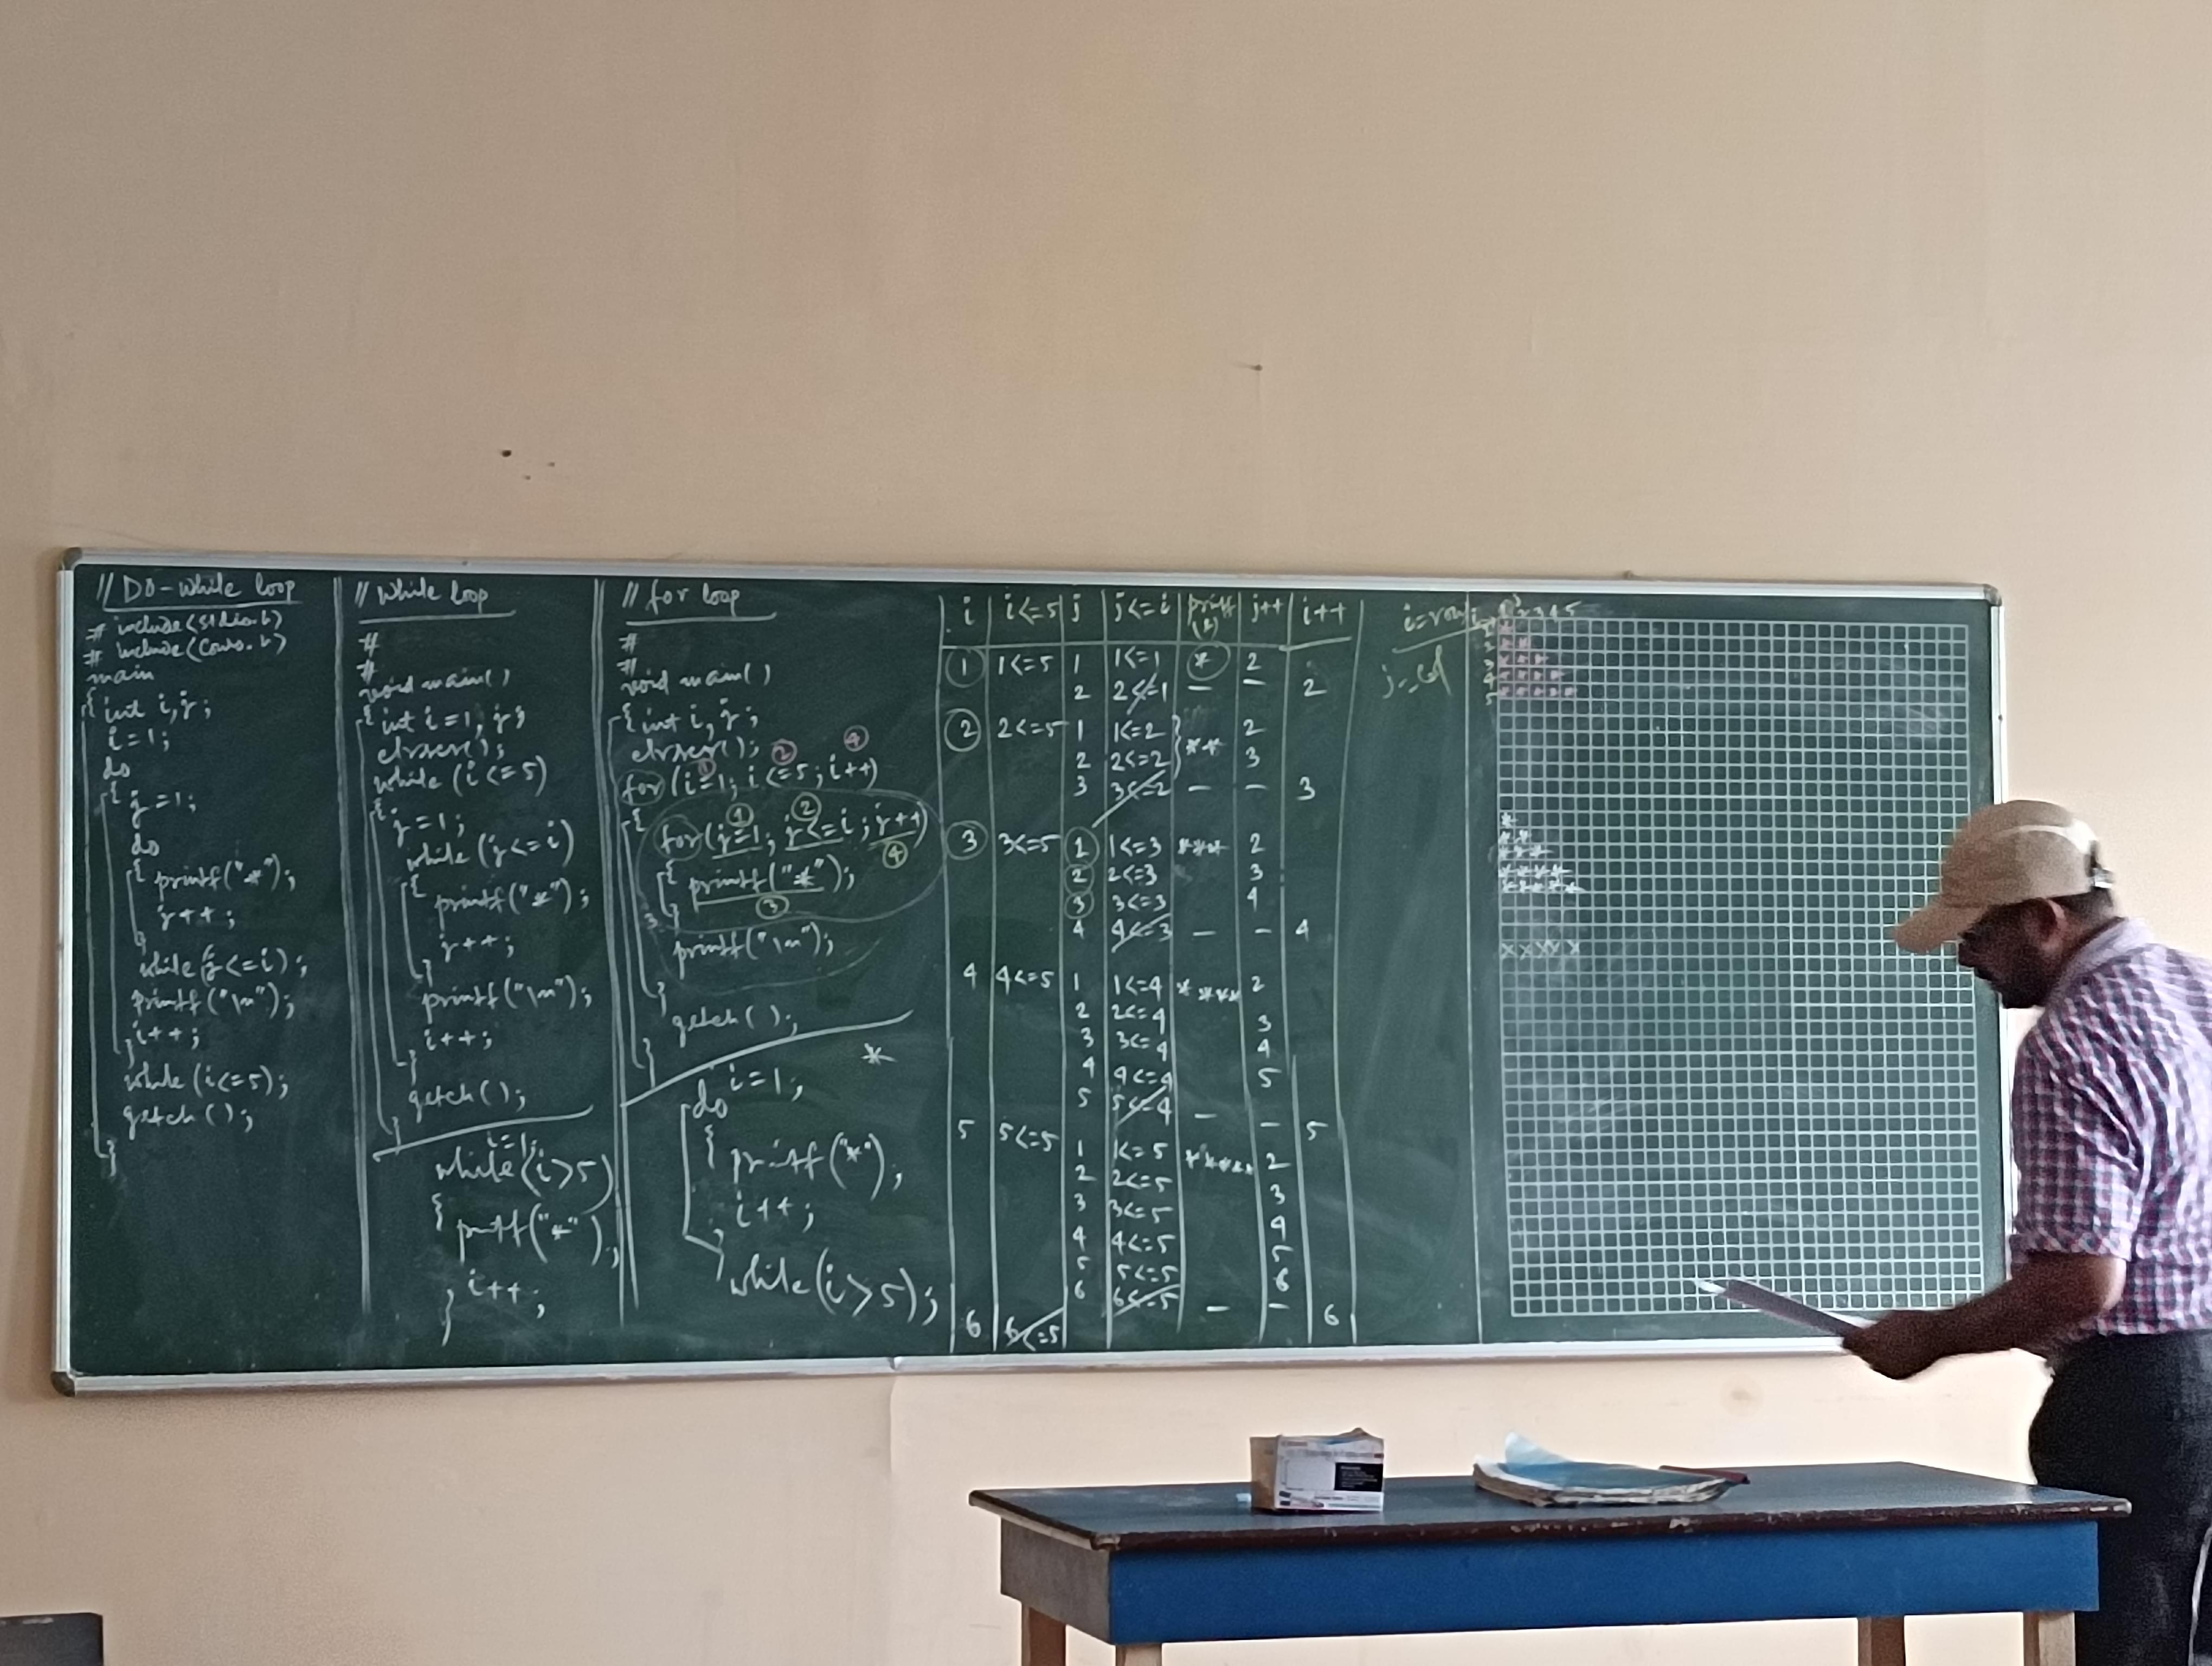 // Do-while loop
# include<stdio.h)
# include(conio.h)
main
{ int i,j;
i=1;
do
{ j=1;
do
{ printf("*");
j++;
}
while(j<=i);
printf("\n");
} i++;
while(i<=5);
getch();
}
// while loop
#
#
void main()
{ int i=1, j;
clrscr();
while (i<=5)
{ j=1;
while (j<=i)
{
printf("*");
j++;
}
printf("\n");
i++;
}
getch();
}
i=1;
while(i>5)
{ printf("*");
i++;
}
// for loop
#
#
void main()
{ int i, j;
clrscr();
1 2 4
for (i=1; i<=5; i++)
{ 1 2
for(j=1; j<=i; j++)
4
{ printf("*");
} 3
printf("\n");
}
getch();
}
*
i=1;
do
{ printf("*");
i++;
}
while(i>5);
i i<=5 j j<=i printf(*) j++ i++
1 1<=5 1 1<=1 * 2
2 2<=1 – – 2
2 2<=5 1 1<=2 } ** 2
2 2<=2 3
3 3<=2 – – 3
3 3<=5 1 1<=3 *** 2
2 2<=3 3
3 3<=3 4
4 4<=3 – – 4
4 4<=5 1 1<=4 * *** 2
2 2<=4 3
3 3<=4 4
4 4<=4 5
5 5<=4 – – 5
5 5<=5
1 1<=5 ***** 2
2 2<=5 3
3 3<=5 4
4 4<=5 5
5 5<=5 6
6 6<=5 – – 6
6 6<=5
i=row
j=col
1 2 3 4 5
1 *
2 * *
3 * * *
4 * * * *
5
*
* *
* * *
* * * *
* * * * *
x x x x x